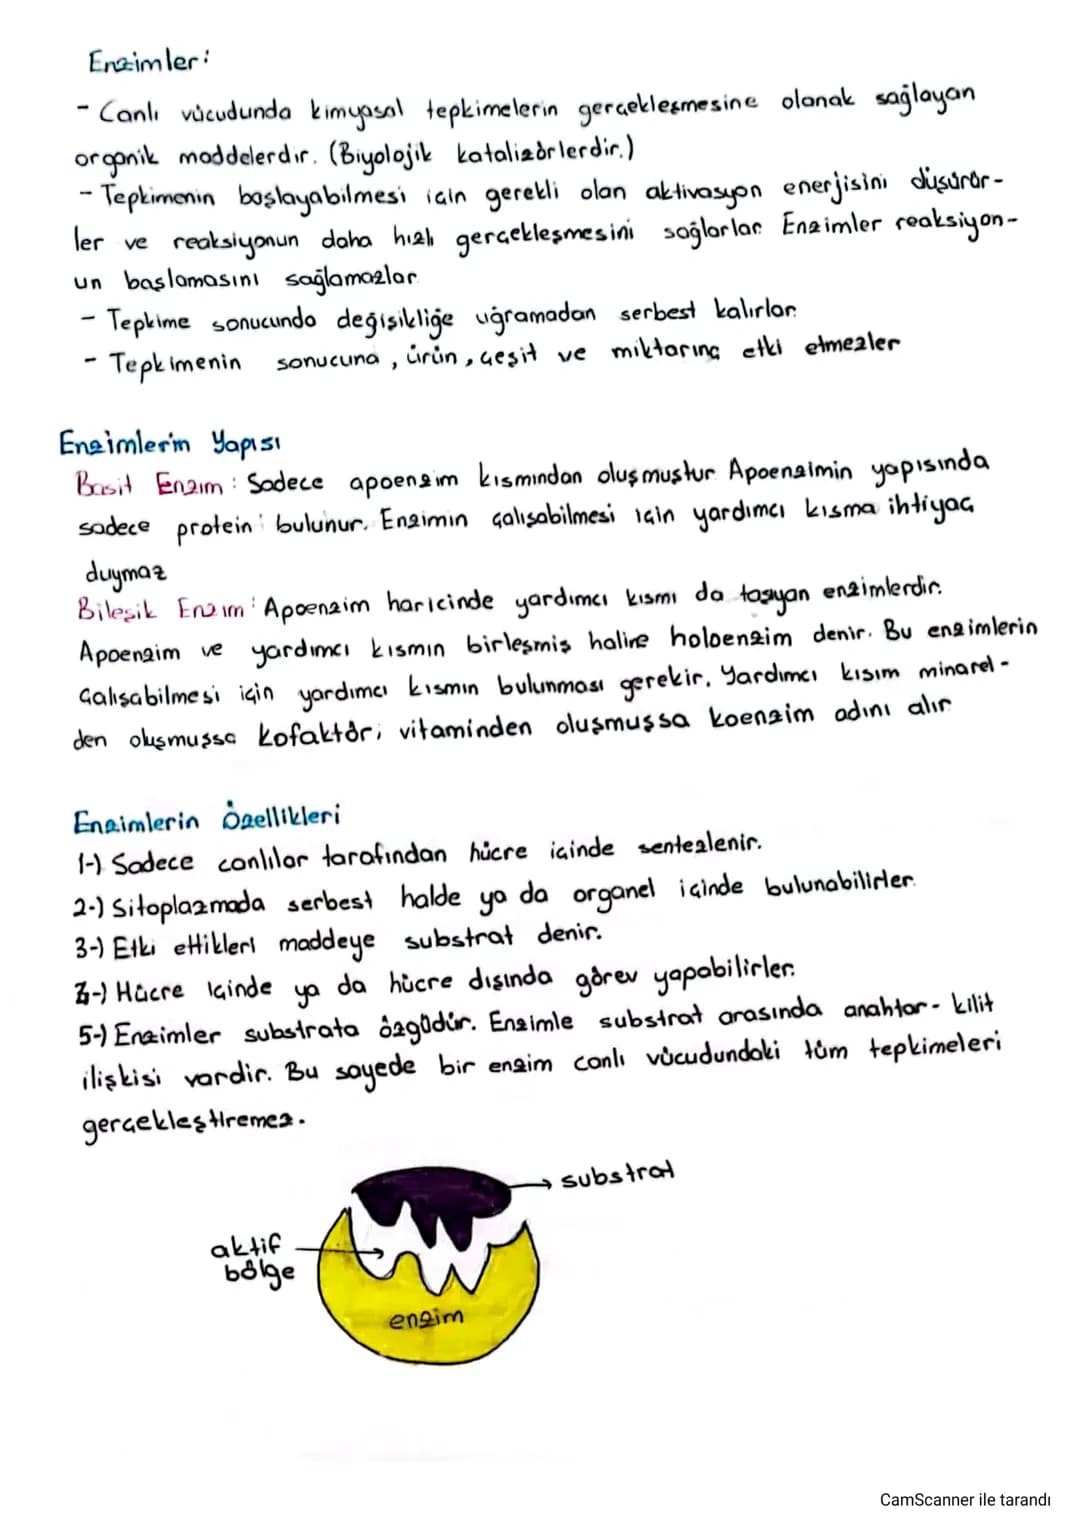 Enzimler:
- Canlı vücudunda kimyasal tepkimelerin gerçekleşmesine olanak sağlayan
organik maddelerdir. (Biyolojik katalizörlerdir.)
- Tepkimenin başlayabilmesi için gerekli olan aktivasyon enerjisini düşürür-
ler ve reaksiyonun daha hızlı gerçekleşmesini sağlarlar. Enzimler reaksiyon-
un başlamasını sağlamazlar.
- Tepkime sonucunda değişikliğe uğramadan serbest kalırlar.
- Tepkimenin sonucuna, ürün, çeşit ve miktarına etki etmezler
Enzimlerin Yapısı
Basit Enzim: Sadece apoenzim kısmından oluşmuştur. Apoenzimin yapısında
sadece protein bulunur. Enzimin çalışabilmesi için yardımcı kısma ihtiyaç
duymaz
Bileşik Enzim: Apoenzim haricinde yardımcı kısmı da taşıyan enzimlerdir.
Apoenzim ve yardımcı kısmın birleşmiş haline holoenzim denir. Bu enzimlerin
çalışabilmesi için yardımcı kısmın bulunması gerekir. Yardımcı kısım minarel-
den oluşmuşsa kofaktör; vitaminden oluşmuşsa koenzim adını alır
Enzimlerin Özellikleri
1-) Sadece canlılar tarafından hücre içinde sentezlenir.
2-) Sitoplazmada serbest halde ya da organel içinde bulunabilirler.
3-) Etki ettikleri maddeye substrat denir.
4-) Hücre içinde ya da hücre dışında görev yapabilirler.
5-) Enzimler substrata özgüdür. Enzimle substrat arasında anahtar-kilit
ilişkisi vardir. Bu sayede bir enzim canlı vücudundaki tüm tepkimeleri
gerçekleştiremez.
substrat
aktif
bölge
enzim
CamScanner ile tarandı